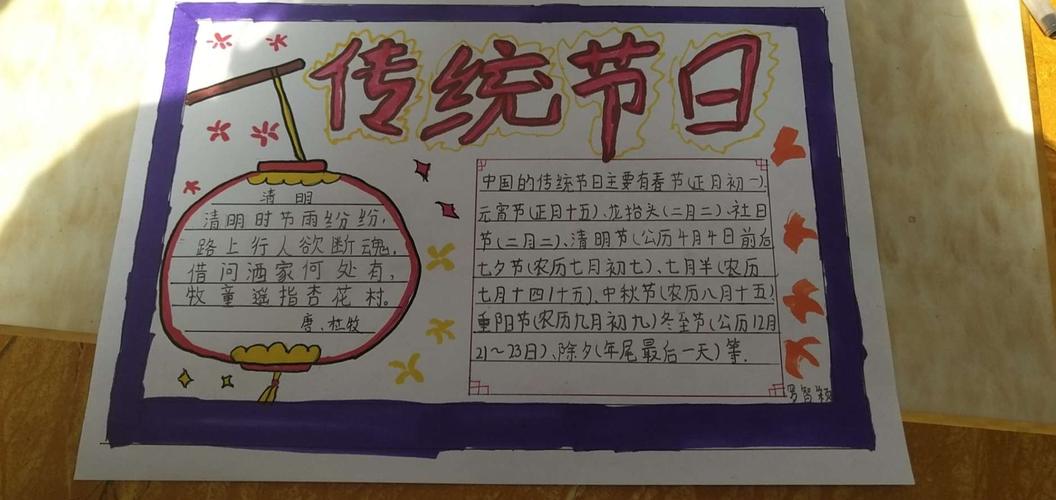 传统节日
清明
清明时节雨纷纷，
路上行人欲断魂。
借问酒家何处有，
牧童遥指杏花村。
唐、杜牧
中国的传统节日主要有春节(正月初一)、
元宵节(正月十五)、龙抬头(二月二)、社日
节(二月二)、清明节(公历4月4日前后
七夕节(农历七月初七)、七月半(农历
七月十四/十五)、中秋节(农历八月十五)
重阳节(农历九月初九)冬至节(公历12月
21～23日)、除夕(年尾最后一天)等.
罗智颖